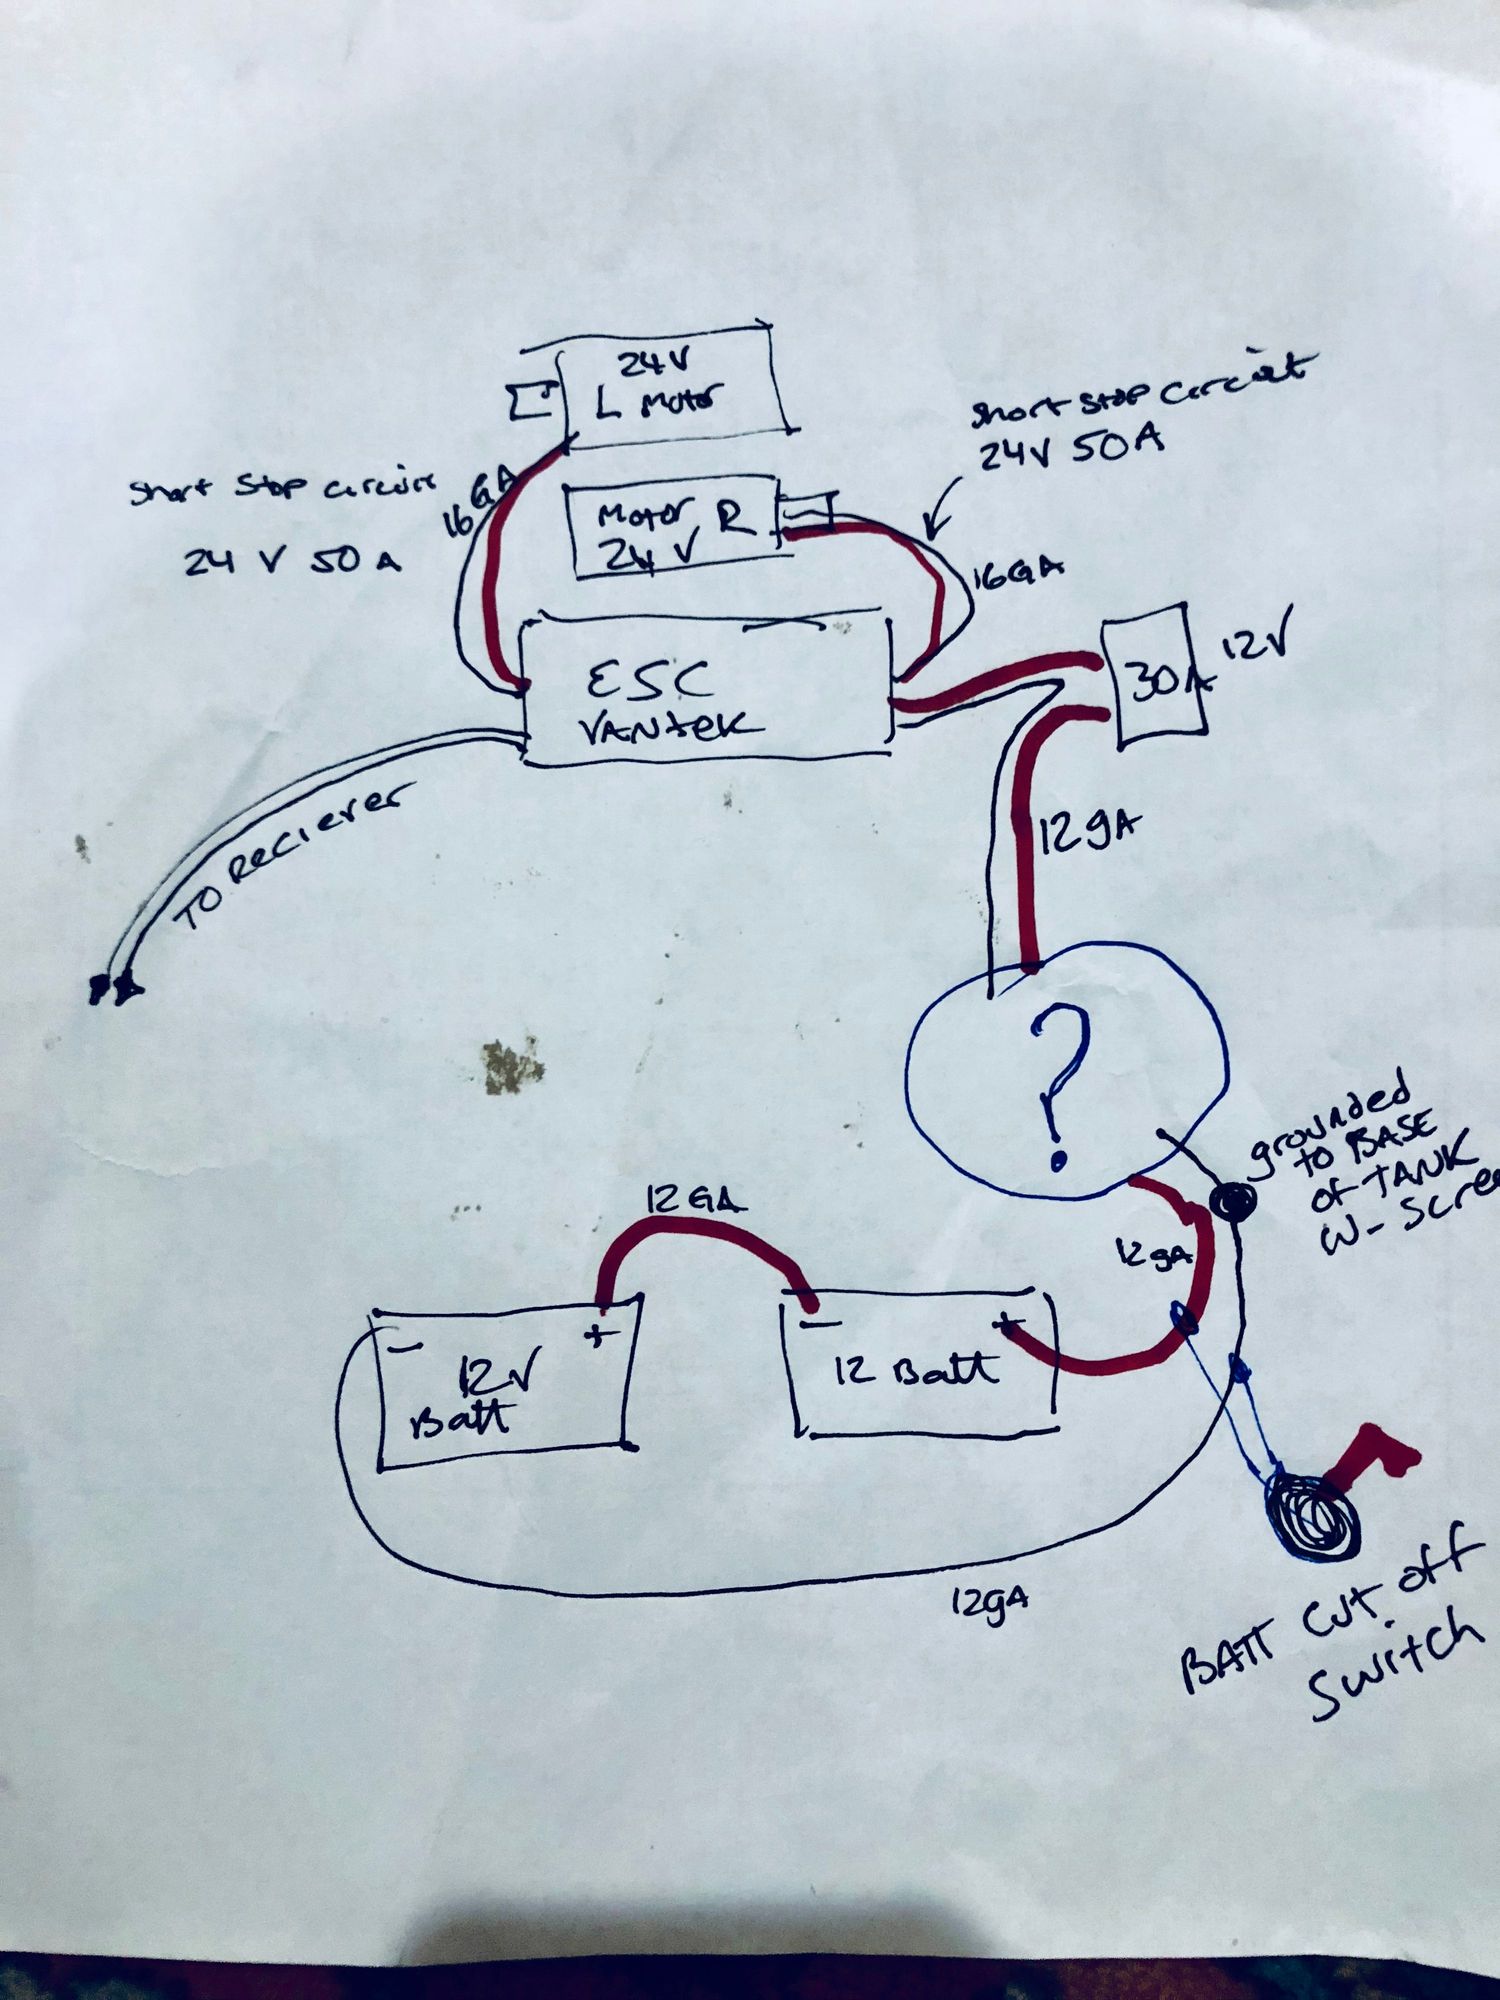 24V
L Motor
short stop circuit
24V 50A
short stop circuit
24 V 50 A
16GA
Motor R
24 V
16GA
ESC
VANTEK
30A
12V
TO RECIEVER
12gA
?
grounded
TO BASE
OF TANK
W- Scre
12GA
12gA
- +
12V
Batt
- +
12 Batt
12gA
BATT CUT OFF
Switch